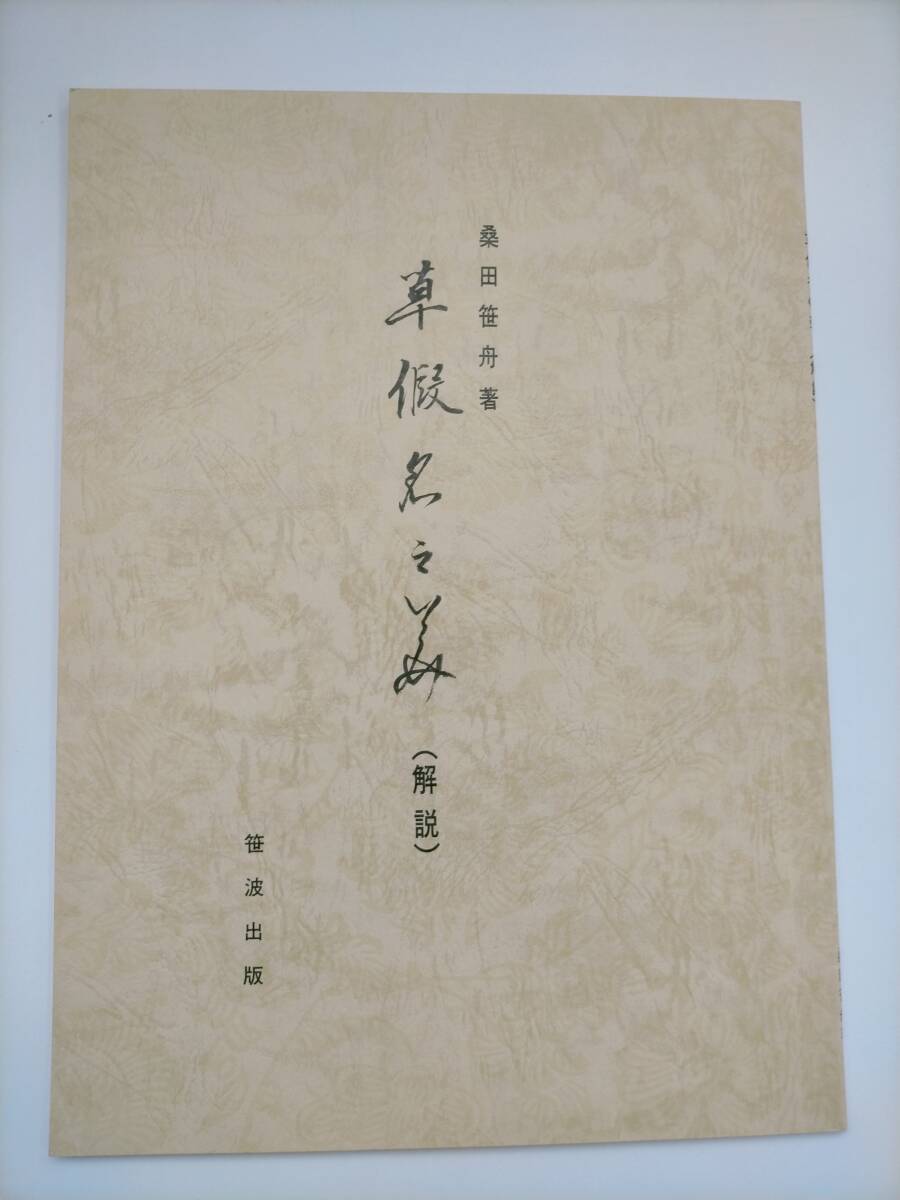 桑田笹舟著
草假名之美
(解説)
笹波出版